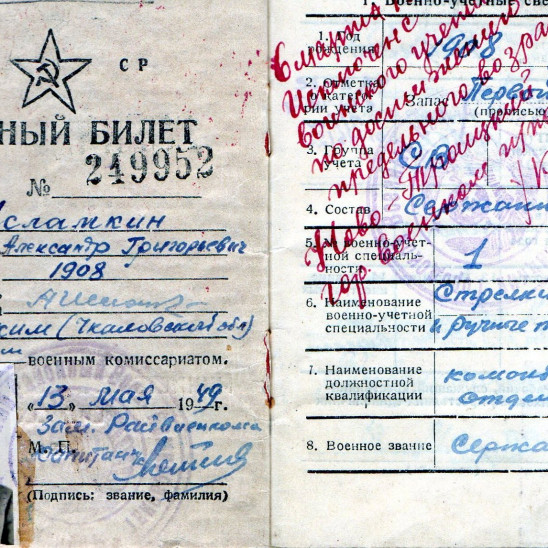 СР
НЫЙ БИЛЕТ
№ 249952
Исламкин
Александр Григорьевич
1908
ким (Чкаловской обл)
военным комиссариатом.
„13" мая 1949г.
Зам. Райвоенкома
М. П. Капитан
(Подпись: звание, фамилия)
1. Год рождения 1908
2. Отметка о категории учета Запас Первой
(прописью
3. Группа учета СА
4. Состав Сержан
5. № военно-учетной специальности 1
6. Наименование военно-учетной специальности Стрелки и ручные
7. Наименование должностной квалификации отдел
8. Военное звание Сержа
Исключен с
воинского учета
по достижении
предельного возра
Ново-Троицкий
гор. военному